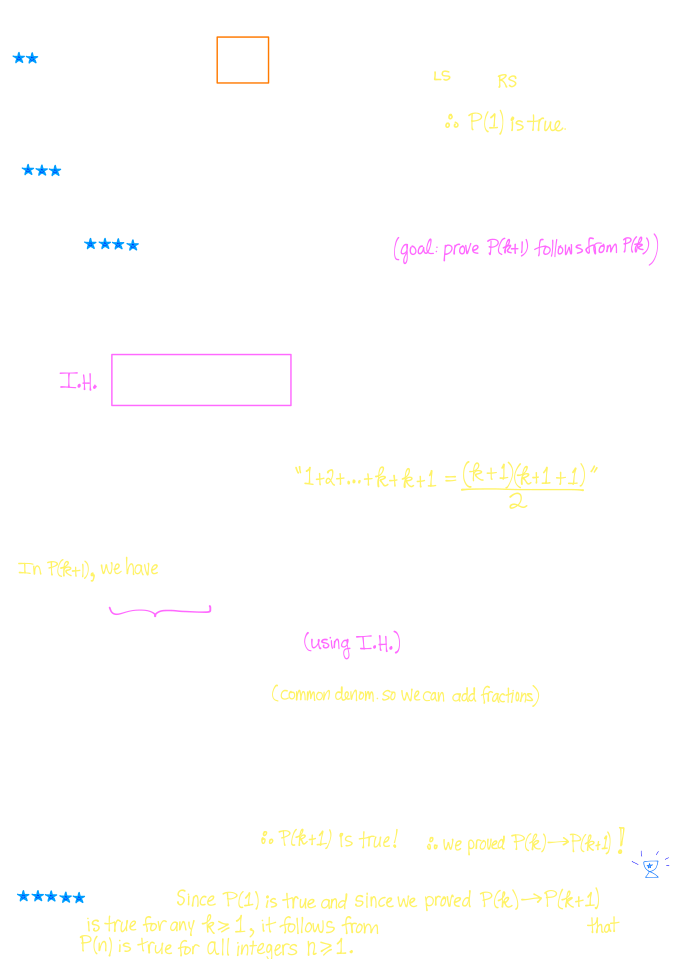 LS RS
∴ P(1) is true.
(goal: prove P(k+1) follows from P(k))
I.H.
"1+2+...+k+k+1 = (k+1)(k+1+1)"
2
In P(k+1), we have
(using I.H.)
(common denom. so we can add fractions)
∴ P(k+1) is true! ∴ we proved P(k)→P(k+1)!
Since P(1) is true and since we proved P(k)→P(k+1)
is true for any k≥1, it follows from that
P(n) is true for all integers n≥1.